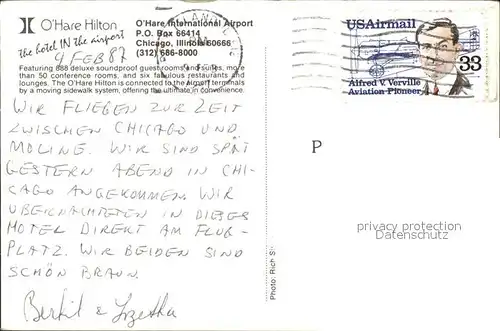 O'Hare Hilton
the hotel IN the airport
O'Hare International Airport
P.O. Box 66414
Chicago, Illinois 60666
(312) 686-8000
9 FEB 87
Featuring 888 deluxe soundproof guest rooms and suites, more
than 50 conference rooms, and six fabulous restaurants and
lounges. The O'Hare Hilton is connected to the Airport terminals
by a moving sidewalk system, offering the ultimate in convenience.
WIR FLIEGEN ZUR ZEIT
ZWISCHEN CHICAGO UND
MOLINE. WIR SIND SPÄT
GESTERN ABEND IN CHI-
CAGO ANGEKOMMEN. WIR
ÜBERNACHTETEN IN DIESES
HOTEL DIREKT AM FLUG-
PLATZ. WIR BEIDEN SIND
SCHÖN BRAUN.
Bertil &
Photo: Rich
USAirmail
33
Alfred V. Verville
Aviation Pioneer
P
privacy protection
Datenschutz